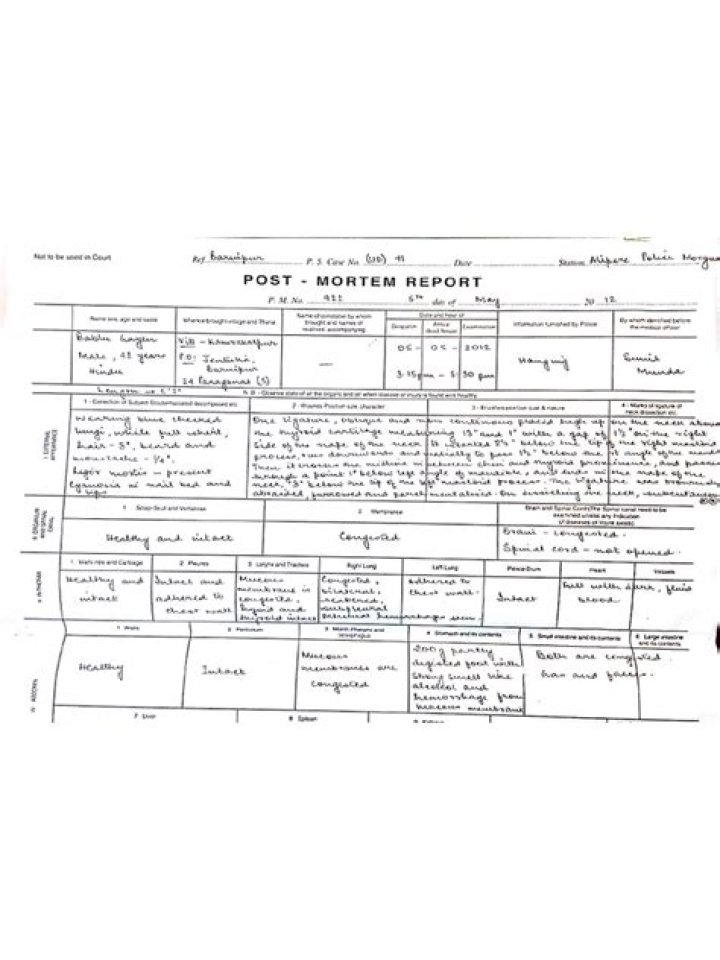 Not to be used in Court
Ref Baruipur P. S. Case No. (UD) 41 Date Station Alipore Police Morgue
POST - MORTEM REPORT
P. M. No. 922 5th day of May 2012
Name sex, age and caste
Whence brought-village and Thana
Name of constable by whom brought and names of relatives accompanying
Date and hour of
Despatch
Arrival dead house
Examination
Information furnished by Police
By whom identified before the medical officer
Male, 42 years
Hindu
P.O:
Baruipur
24 Paraganas (S)
—
05 - 05 - 2012
3:15pm - 5:30 pm
Hanging
Sunil
Munda
Length is 5'
N. B. - Observe state of all the organs and all when disease or injury is found write healthy
2 - Wounds Position-size character
3 - Bruises position size & nature
4 - Marks of ligature of neck dissection etc.
wearing blue checked
lungi, white full shirt,
hair - 3", beard and
moustache - 1/4".
Rigor mortis - present
Cyanosis in nail bed and
lips
One ligature, oblique and non continuous placed high up on the neck above
the thyroid cartilage measuring 13" and 1" with a gap of 1½" on the right
side of the nape of the neck. It started 2½" below the tip of the right mastoid
process, run downwards and medially to pass 1½" below the rt angle of the mandible
Then it crosses the midline in between chin and thyroid prominence, and passes
through a point 1" below left angle of mandible, and ends in the nape of the
neck, 3" below the tip of the left mastoid process. The ligature was brownish
abraided, furrowed and parchmentalised. On dissecting the neck, subcutaneous
1 Scalp-Skull and Vertebrae
2 Membrane
Brain and Spinal Cord(The Spinal canal need to be examined unless any indication of disease or injure exists)
Healthy and intact
Congested
Brain - congested.
Spinal cord - not opened.
1. Walls ribs and Cartilage
2 Pleurae
3 Larynx and Trachea
Right Lung
Left Lung
Heart
Vessels
Healthy and
intact
Intact and
adhered to
chest wall
Mucous
membrane is
congested,
hyoid and
thyroid intact
Congested,
bilateral,
haemorrhage seen
Adhered to
chest wall.
Intact
Full with dark, fluid
blood
1 Walls
2 Peritoneum
3 Mouth Pharynx and oesophagus
4 Stomach and its contents
5 Small intestine and its contents
6 Large intestine and its contents
Healthy
Intact
Mucous
membranes are
congested
200g partly
digested food with
strong smell like
alcohol and
hemorrhage from
mucous membrane
Both are congested.
Gas and faeces.
IV ABDOMEN
7 Liver
8 Spleen